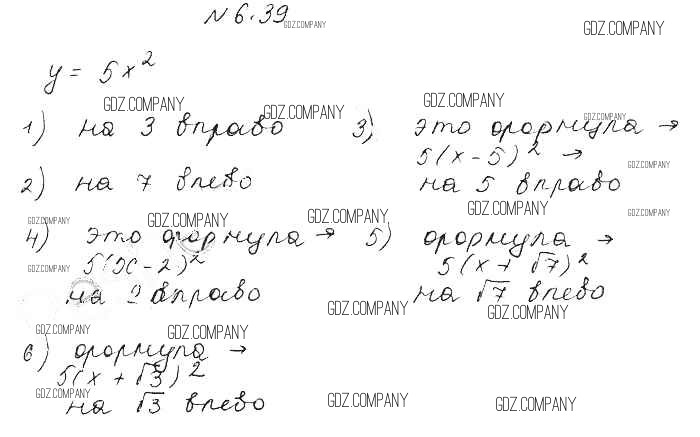 № 6.39
GDZ.COMPANY
GDZ.COMPANY
y = 5x²
GDZ.COMPANY
GDZ.COMPANY
GDZ.COMPANY
GDZ.COMPANY
1) на 3 вправо
2) на 7 влево
3) это формула →
5(x - 5)² →
на 5 вправо
GDZ.COMPANY
GDZ.COMPANY
GDZ.COMPANY
GDZ.COMPANY
GDZ.COMPANY
GDZ.COMPANY
4) это формула →
5(x - 2)²
на 2 вправо
GDZ.COMPANY
5) формула →
5(x + √7)²
на √7 влево
GDZ.COMPANY
GDZ.COMPANY
GDZ.COMPANY
GDZ.COMPANY
6) формула →
5(x + √3)²
на √3 влево
GDZ.COMPANY
GDZ.COMPANY
GDZ.COMPANY